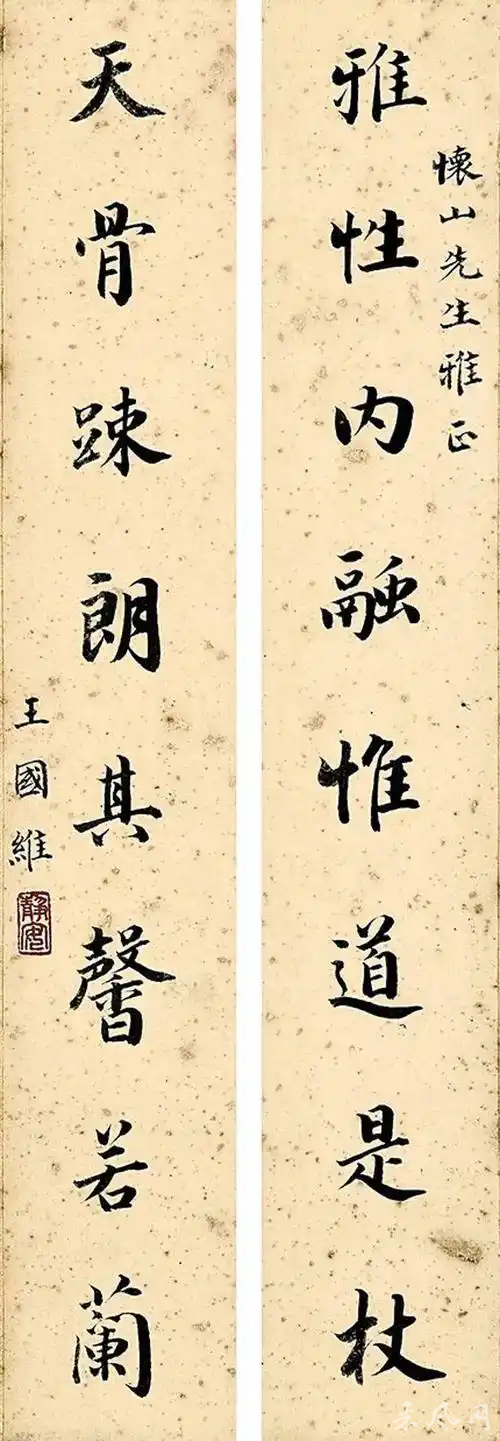 懷山先生雅正
雅性内融惟道是杖
天骨踈朗其馨若蘭
王國維
靜安
采风网